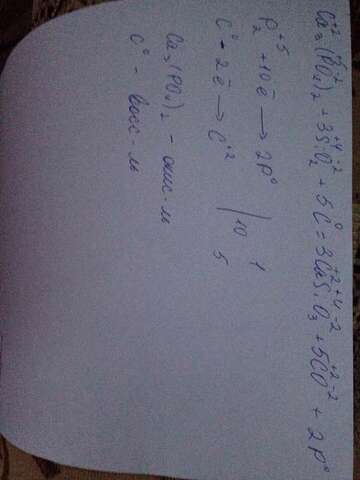 Ca₃⁺²(P⁺⁵O₄⁻²)₂ + 3Si⁺⁴O₂⁻² + 5C⁰ = 3Ca⁺²Si⁺⁴O₃⁻² + 5C⁺²O⁻² + 2P⁰
P₂⁺⁵ +10ē → 2P⁰ | 10 1
C⁰ - 2ē → C⁺² | 5
Ca₃(PO₄)₂ - окис-ль
C⁰ - восс-ль